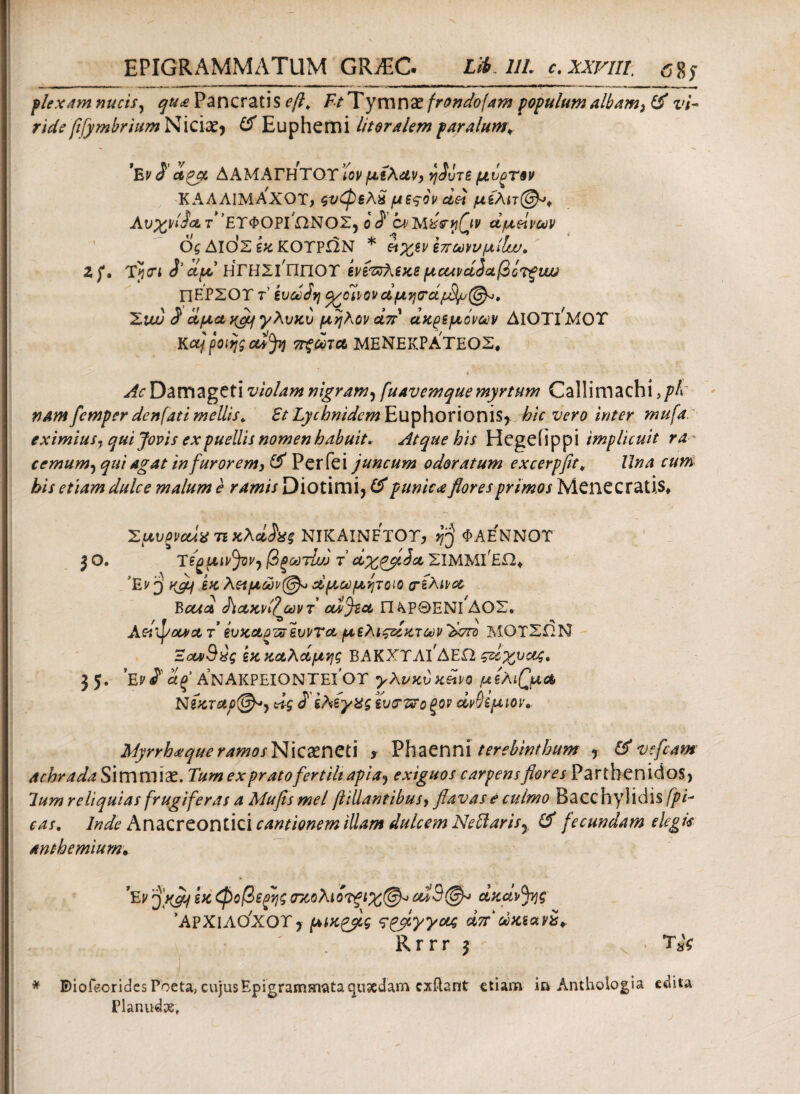 EPIGRAMMATUM GRÆC. Lib. III. c. XXVIII. 685
plexam nucis, quæ Pancratis est. Et Tymnæ frondosam populum albam, & vi-
ride sisymbrium Niciæ, & Euphemi litoralem paralum.
Ἐν δ' ἄρα ΔΑΜΑΓΗΤΟΥ ἴον μέλαν, ἡδύτε μύρτον
ΚΑΛΛΙΜΑΧΟΥ, στυφελῦ μεστὸν ἀεὶ μέλιτος.
Λυχνίδα τ' ΕΥΦΟΡΙΩΝΟΣ, ὁ δ' ἐν Μέσησιν ἀμείνων
Ὃς ΔΙΟΣ ἐκ ΚΟΥΡΩΝ * εἶχεν ἐπωνυμίην.
25. Τῇσι δ' ἅμ' ΗΓΗΣΙΠΠΟΥ ἐνέπλεκε μαινάδα βότρυν
ΠΕΡΣΟΥ τ' εὐώδη σχοῖνον ἀμησάμενος.
Σὺν δ' ἅμα καὶ γλυκὺ μῆλον ἀπ' ἀκρεμόνων ΔΙΟΤΙΜΟΥ
Καὶ ῥοιῆς ἄνθη πρῶτα ΜΕΝΕΚΡΑΤΕΟΣ.
Ac Damageti violam nigram, suavemque myrtum Callimachi, ple-
nam semper densati mellis. Et Lychnidem Euphorionis, hic vero inter musas
eximius, qui Jovis ex puellis nomen habuit. Atque his Hegesippi implicuit ra-
cemum, qui agat in furorem, & Persei juncum odoratum excerpsit. Una cum
his etiam dulce malum è ramis Diotimi, & punicæ flores primos Menecratis.
Σμυρναίῦ τε κλάδῦς ΝΙΚΑΙΝΕΤΟΥ, ἠδὲ ΦΑΕΝΝΟΥ
30. Τέρμινθον, βρωτὴν τ' ἀχράδα ΣΙΜΜΙΕΩ.
Ἐν δὲ καὶ ἐκ λειμῶνος ἀμωμήτοιο σέλινα
Βαιὰ διακνίζων τ' ἄνθεα ΠΑΡΘΕΝΙΔΟΣ.
Λείψανα τ' εὐκαρπεῦντα μελιστάκτων ἀπὸ ΜΟΥΣΩΝ
Ξανθῦς ἐκ καλάμης ΒΑΚΧΥΛΙΔΕΩ στάχυας.
35. Ἐν δ' ἄρ' ΑΝΑΚΡΕΙΟΝΤΕΙΟΥ γλυκὺ κεῖνο μέλισμα
Νέκταρος, εἰς δ' ἐλέγῦς εὔσπορον ἀνθέμιον.
Myrrhæque ramos Nicæneti, Phaenni terebinthum, & vescam
achrada Simmiæ. Tum ex prato fertili apia, exiguos carpens flores Parthenidos,
Tum reliquias frugiferas a Musis mel stillantibus, flavas e culmo Bacchylidis spi-
cas. Inde Anacreontici cantionem illam dulcem Nectaris, & fecundam elegis
anthemium.
Ἐν δὲ καὶ ἐκ φοβερῆς σκολιότριχος ἄνθος ἀκάνθης
ΑΡΧΙΛΟΧΟΥ, μικρὰς στράγγας ἀπ' ὠκεανῦ.
Rrrr 3 Τῦς
* Diosforides Poeta, cujus Epigrammata quædam exstant etiam in Anthologia edita
Planudæ,